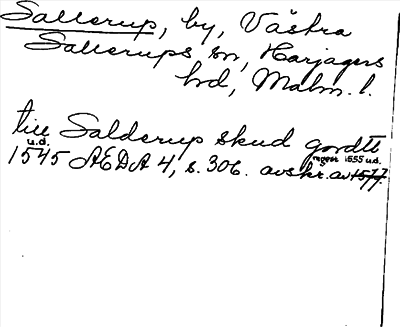 Sallerup, by, Västra
Sallerups sn, Harjagers
hd, Malm. l.
till Salderup skud gordtt
u.d. regest 1555 u.d.
1545 AEDA 4, s. 306. avskr. av 1577.